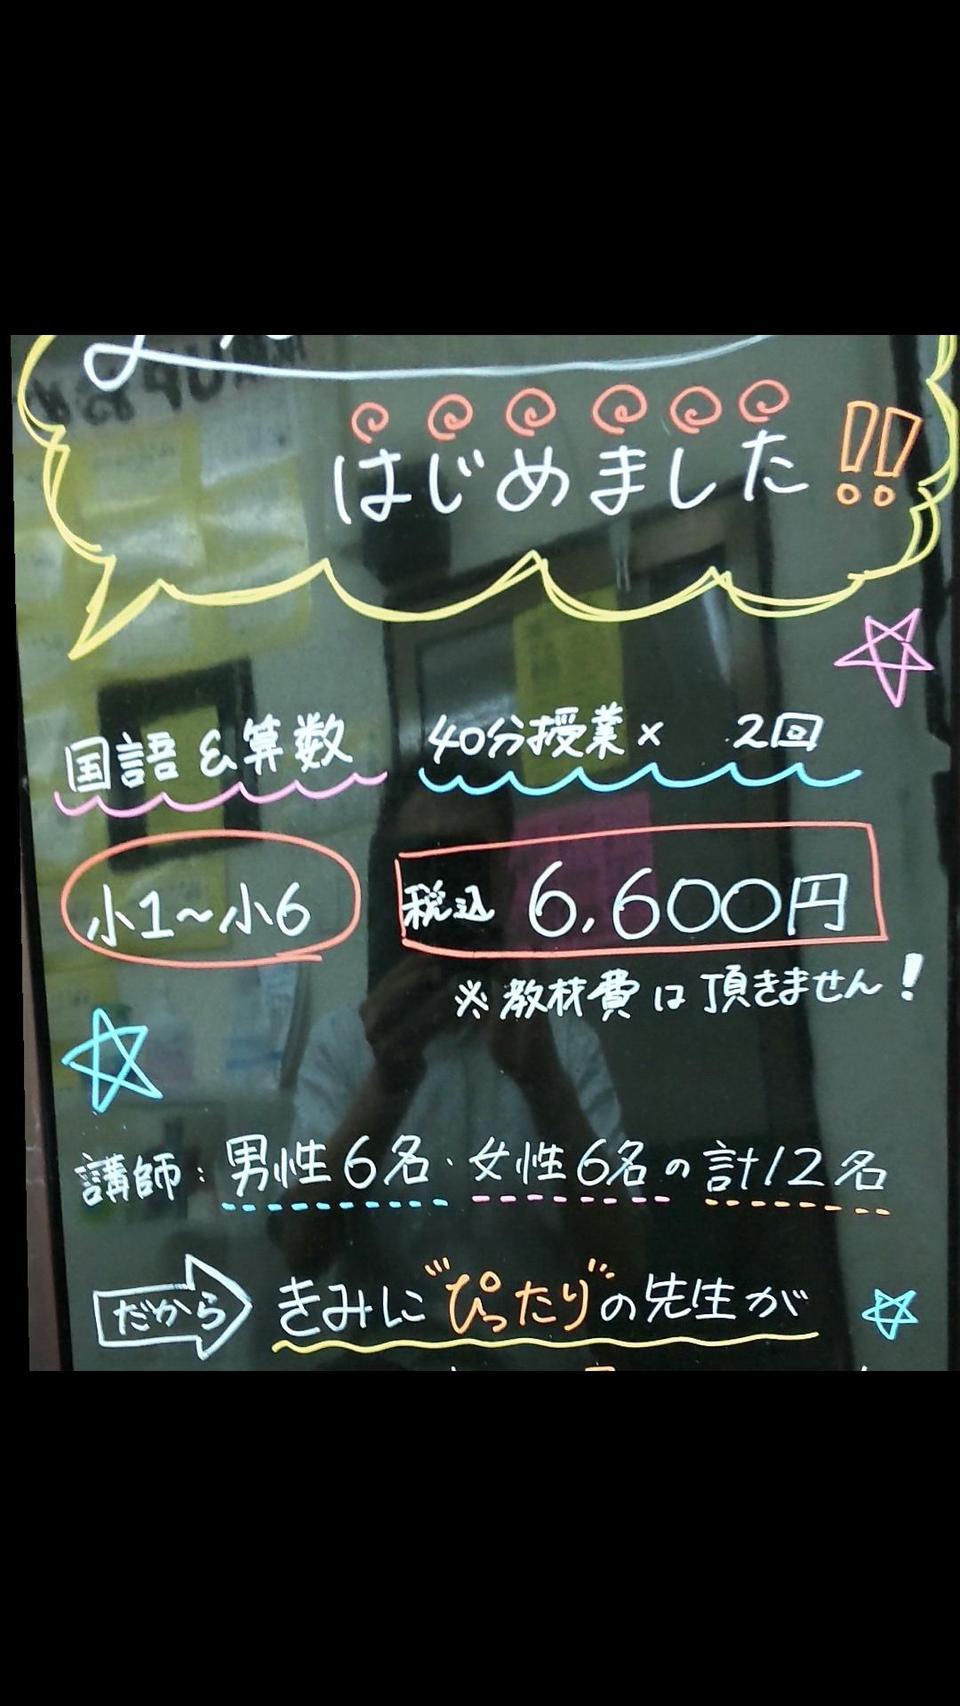 はじめました!!
国語&算数 40分授業× 2回
小1~小6 税込 6,600円
※教材費は頂きません!
講師:男性6名・女性6名の計12名
だから きみに"ぴったり"の先生が